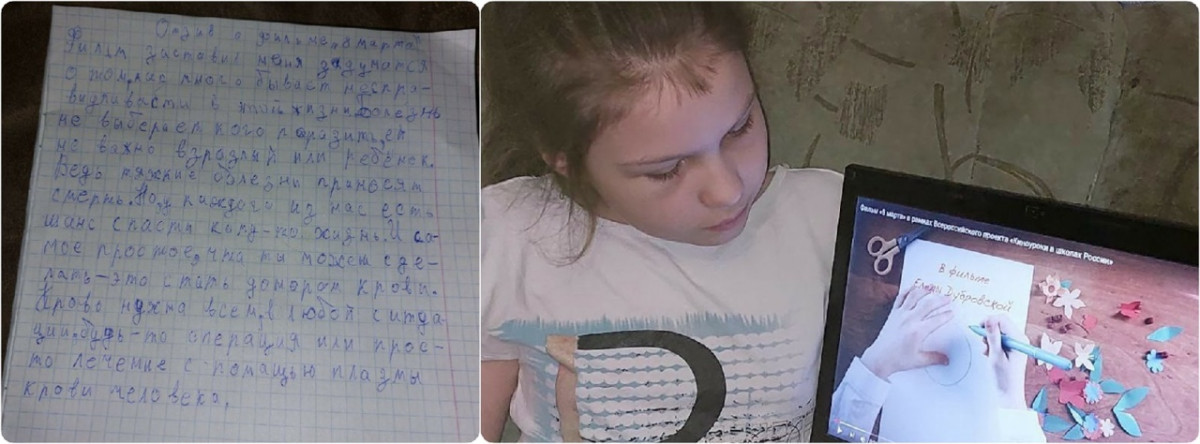 Отзыв о фильме „8 марта"
Фильм заставил меня задуматся
о том, как много бывает неспра-
видливасти в этой жизни. Болезнь
не выберает кого паразить, ей
не важно взраслый или ребёнек.
Ведь тяжкие болезни приносят
смерть. Но у каждого из нас есть
шанс спасти кому-то жизнь. И са-
мое простое, что ты можеш сде-
лать-это стать донором крови.
Кровь нужна всем, в любой ситуа-
ции, будь-то операция или прос-
то лечение с помащью плазмы
крови человека.
Фильм «8 марта» в рамках Всероссийского проекта «Киноуроки в школах России»
В фильме
Елены Дубровской